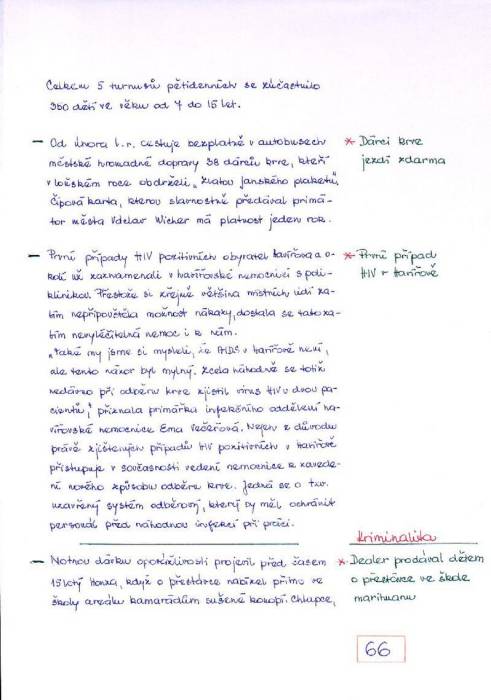 Celkem 5 turnusů pětidenních se zúčastnilo
350 dětí ve věku od 7 do 15 let.
- Od února t.r. cestuje bezplatně v autobusech
městské hromadné dopravy 38 dárců krve, kteří
v loňském roce obdrželi „Zlatou Janského plaketu".
Čipová karta, kterou slavnostně předával primá-
tor města Vdclav Wicher má platnost jeden rok.
* Dárci krve
jezdí zdarma
- První případy HIV pozitivních obyvatel Havířova a o-
kolí už zaznamenali v havířovské nemocnici s poli-
klinikou. Přestože si zřejmě většina místních lidí za-
tím nepřipouštěla možnost nákazy, dostala se tato za-
tím nevyléčitelná nemoc i k nám.
„Také my jsme si mysleli, že AIDS v Havířově není,
ale tento názor byl mylný. Zcela náhodně se totiž
nedávno při odběru krve zjistil virus HIV u dvou pa-
cientů," přiznala primářka infekčního oddělení ha-
vířovské nemocnice Ema Večeřová. Nejen z důvodu
právě zjištěných případů HIV pozitivních v Havířově
přistupuje v současnosti vedení nemocnice k zavede-
ní nového způsobu odběru krve. Jedná se o tzv.
uzavřený systém odběrový, který by měl ochránit
personál před náhodnou infekcí při práci.
* První případ
HIV v Havířově
Kriminalita
- Notnou dávku opovážlivosti projevil před časem
15letý Honza, když o přestávce nabízel přímo ve
školy areálu kamarádům sušené konopí. Chlapce,
* Dealer prodával dětem
o přestávce ve škole
marihuanu
66